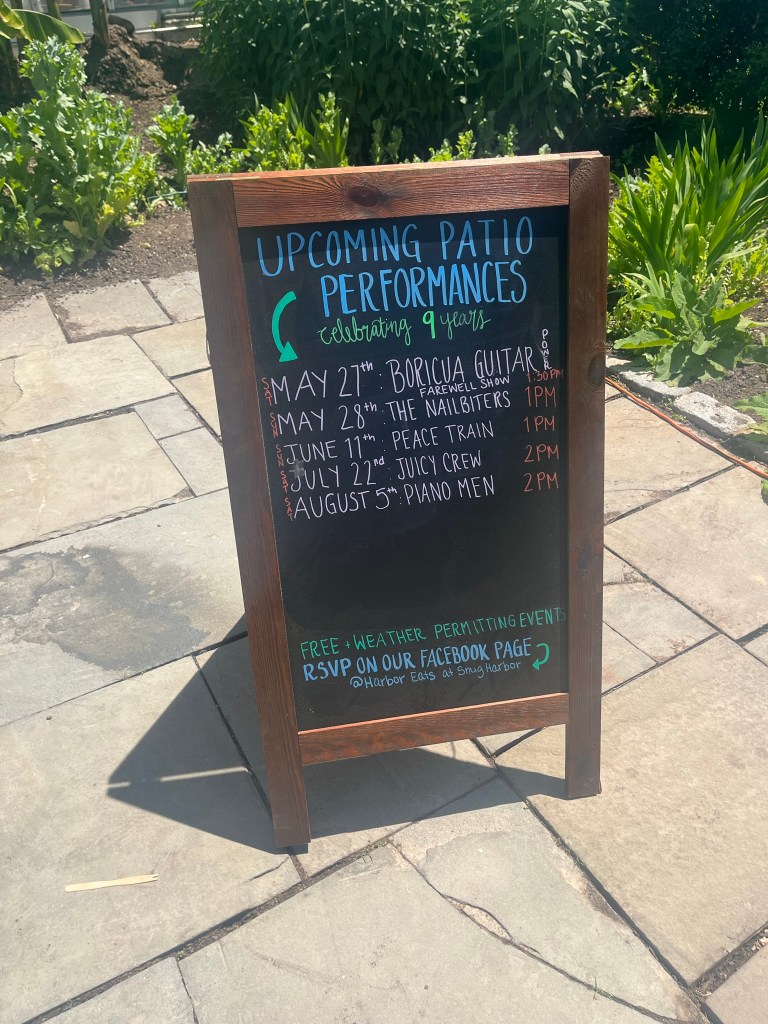 UPCOMING PATIO
PERFORMANCES
celebrating 9 years
SAT MAY 27th: BORICUA GUITAR POWER 1:30PM
FAREWELL SHOW
SUN MAY 28th: THE NAILBITERS 1PM
SUN JUNE 11th: PEACE TRAIN 1PM
SAT JULY 22nd: JUICY CREW 2PM
SAT AUGUST 5th: PIANO MEN 2PM
FREE + WEATHER PERMITTING EVENTS
RSVP ON OUR FACEBOOK PAGE
@Harbor Eats at Snug Harbor